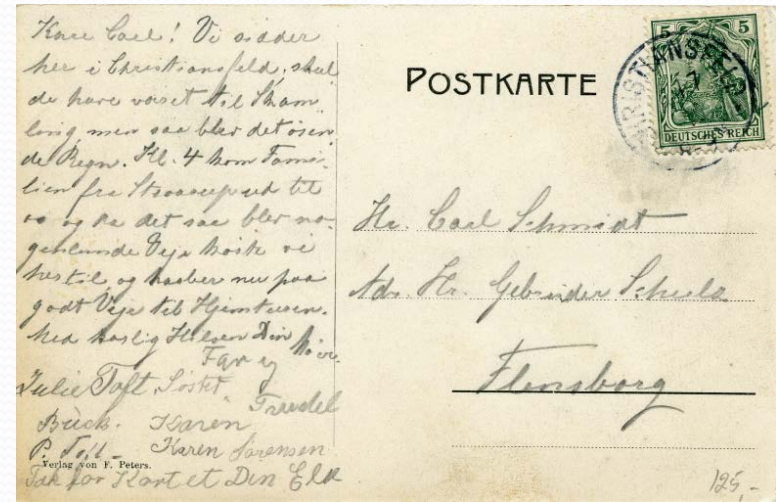 Kære Carl! Vi sidder
her i Christiansfeld, skul
de have været til Skam
ling men saa blev det øsen
de Regn. Kl. 4 kom Fami-
lien fra Strarup ud til
os og da det saa blev no-
genlunde Vejr kørte vi
hertil og haaber nu paa
godt Vejr til Hjemturen.
Med kærlig Hilsen Din Mor.
Far og
Julie Toft, Søster
Treudel
Buck. Karen
P. Toft Karen Sørensen
Tak for Kortet Din
Verlag von F. Peters.
POSTKARTE
5 5
DEUTSCHES REICH
CHRISTIANSFELD
Hr. Carl Schmidt
Adr. Hr. Gebrüder Schulz
Flensborg
125,-